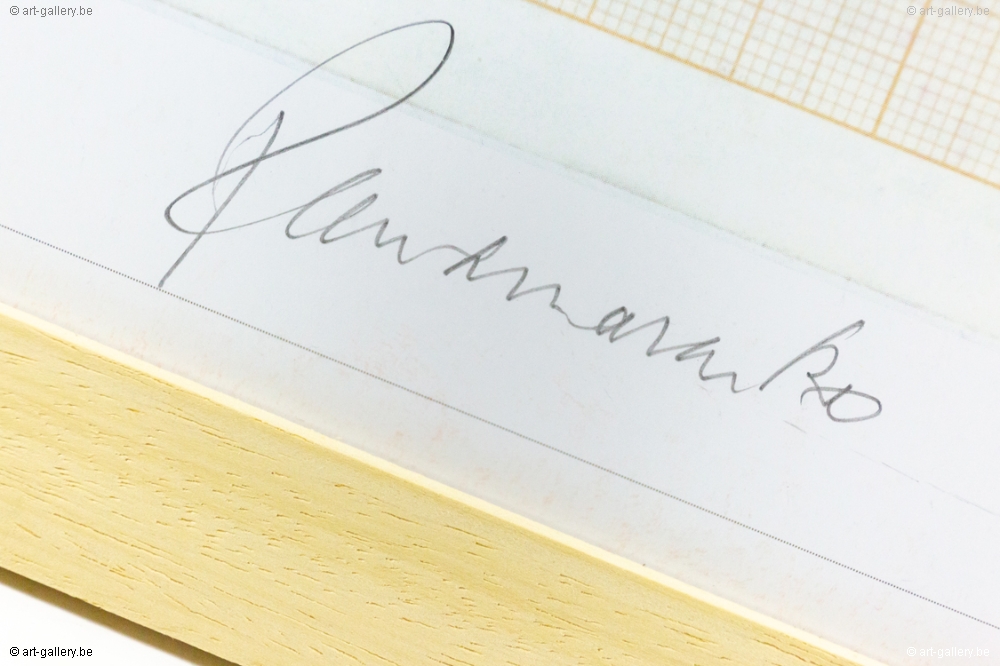 © art-gallery.be © art-gallery.be
Panamarenko
© art-gallery.be © art-gallery.be